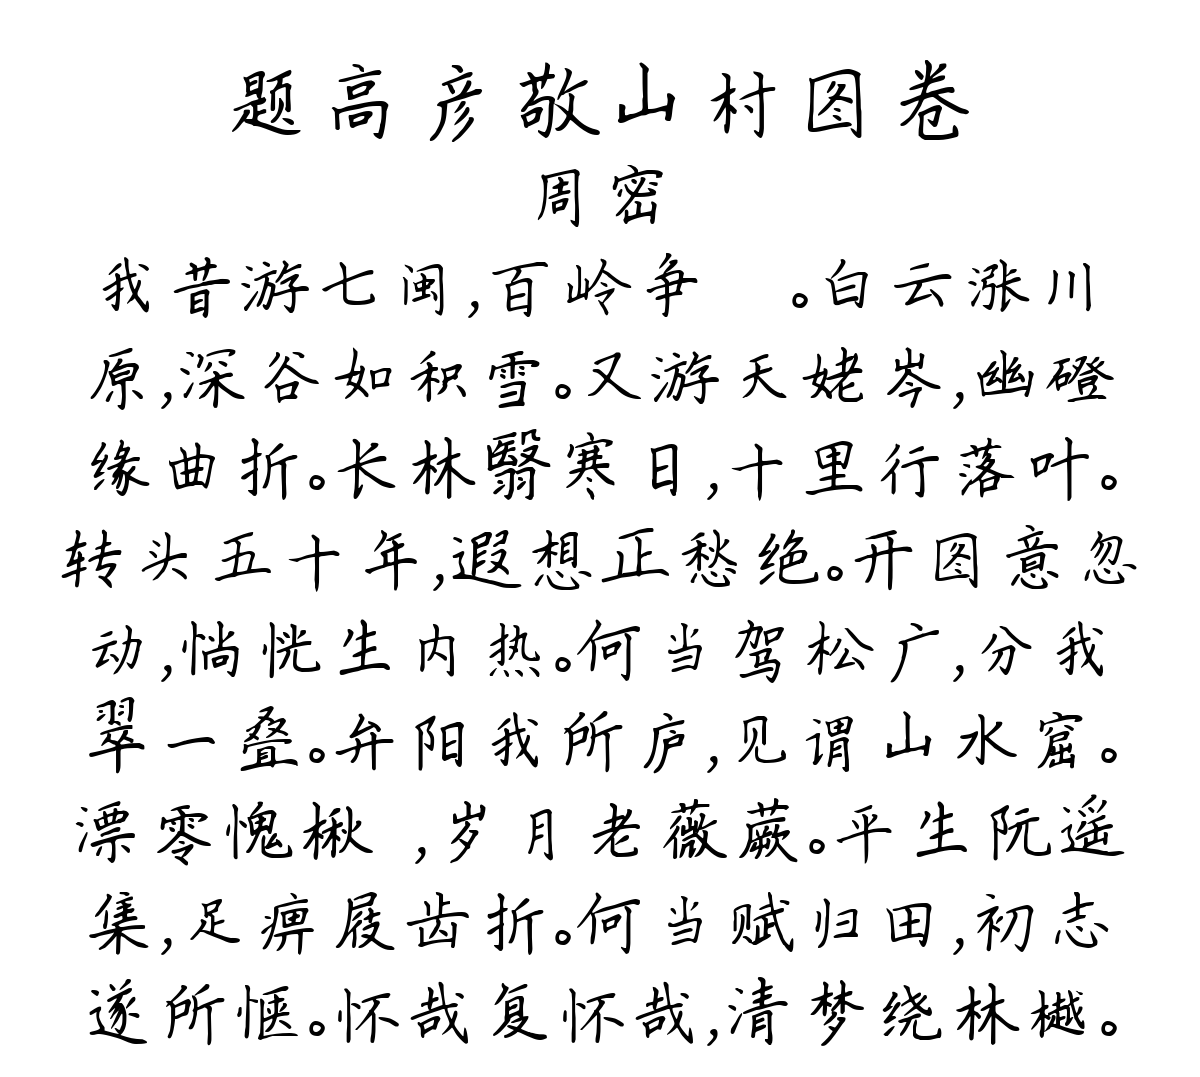 题高彦敬山村图卷
周密
我昔游七闽,百岭争 。白云涨川
原,深谷如积雪。又游天姥岑,幽磴
缘曲折。长林翳寒日,十里行落叶。
转头五十年,遐想正愁绝。开图意忽
动,惝恍生内热。何当驾松广,分我
翠一叠。弁阳我所庐,见谓山水窟。
漂零愧楸 ,岁月老薇蕨。平生阮遥
集,足痹屐齿折。何当赋归田,初志
遂所惬。怀哉复怀哉,清梦绕林樾。